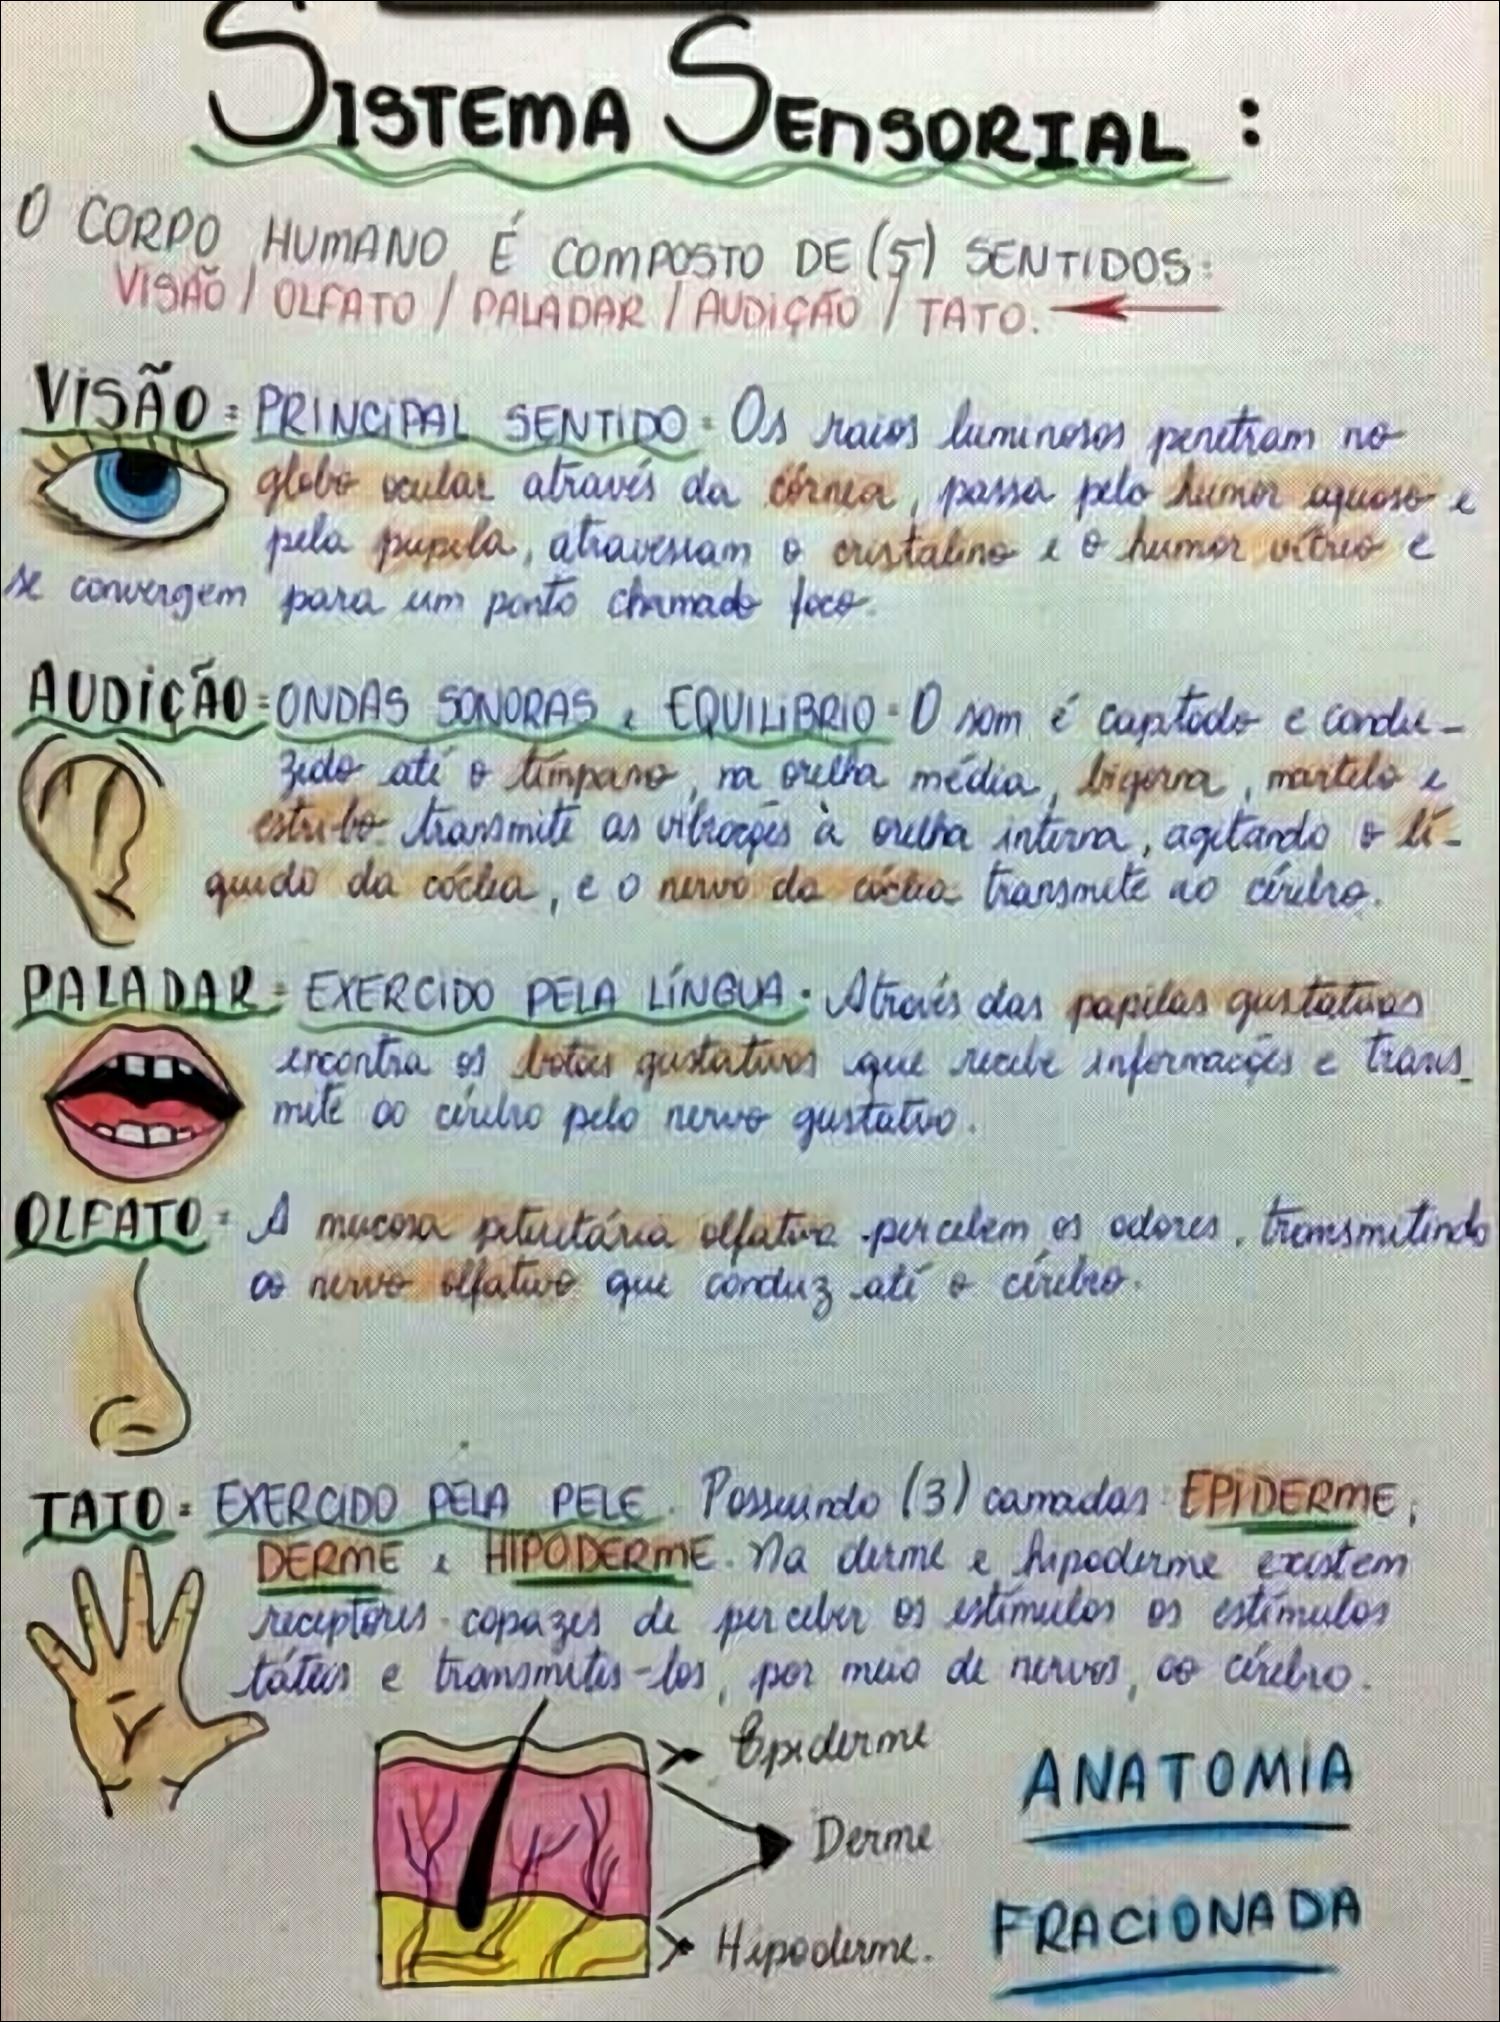 SISTEMA SENSORIAL :
O CORPO HUMANO É COMPOSTO DE (5) SENTIDOS:
VISÃO / OLFATO / PALADAR / AUDIÇÃO / TATO.
VISÃO = PRINCIPAL SENTIDO = Os raios luminosos penetram no
globo ocular através da córnea, passa pelo humor aquoso e
pela pupila, atravessam o cristalino e o humor vítreo e
se convergem para um ponto chamado foco.
AUDIÇÃO = ONDAS SONORAS e EQUILIBRIO = O som é captado e condu-
zido até o tímpano, na orelha média, bigorna, martelo e
estribo transmite as vibrações à orelha interna, agitando o lí-
quido da cóclea, e o nervo da cóclea transmite ao cérebro.
PALADAR = EXERCIDO PELA LÍNGUA. Através das papilas gustativas
encontra os botões gustativos que recebe informações e trans-
mite ao cérebro pelo nervo gustativo.
OLFATO = A mucosa pituitária olfativa percebem os odores, transmitindo
ao nervo olfativo que conduz até o cérebro.
TATO = EXERCIDO PELA PELE. Possuindo (3) camadas EPIDERME,
DERME e HIPODERME. Na derme e hipoderme existem
receptores capazes de perceber os estímulos os estímulos
táteis e transmites-los, por meio de nervos, ao cérebro.
Epiderme
Derme
Hipoderme.
ANATOMIA
FRACIONADA